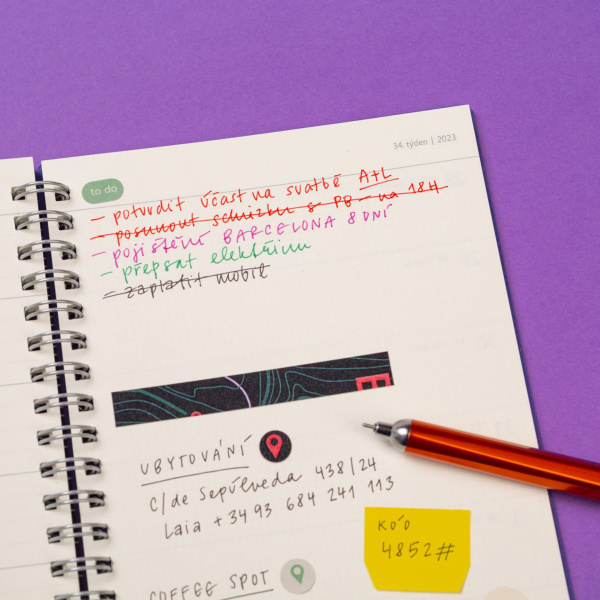 34. týden | 2023
to do
- potvrdit účast na svatbě A+L
- posunout schůzku s PB - na 18H
- pojištění BARCELONA 8 DNÍ
- přepsat elektřinu
- zaplatit mobil
E
UBYTOVÁNÍ
C/de Sepúlveda 438/24
Laia +34 93 684 241 113
KÓD
4852#
COFFEE SPOT